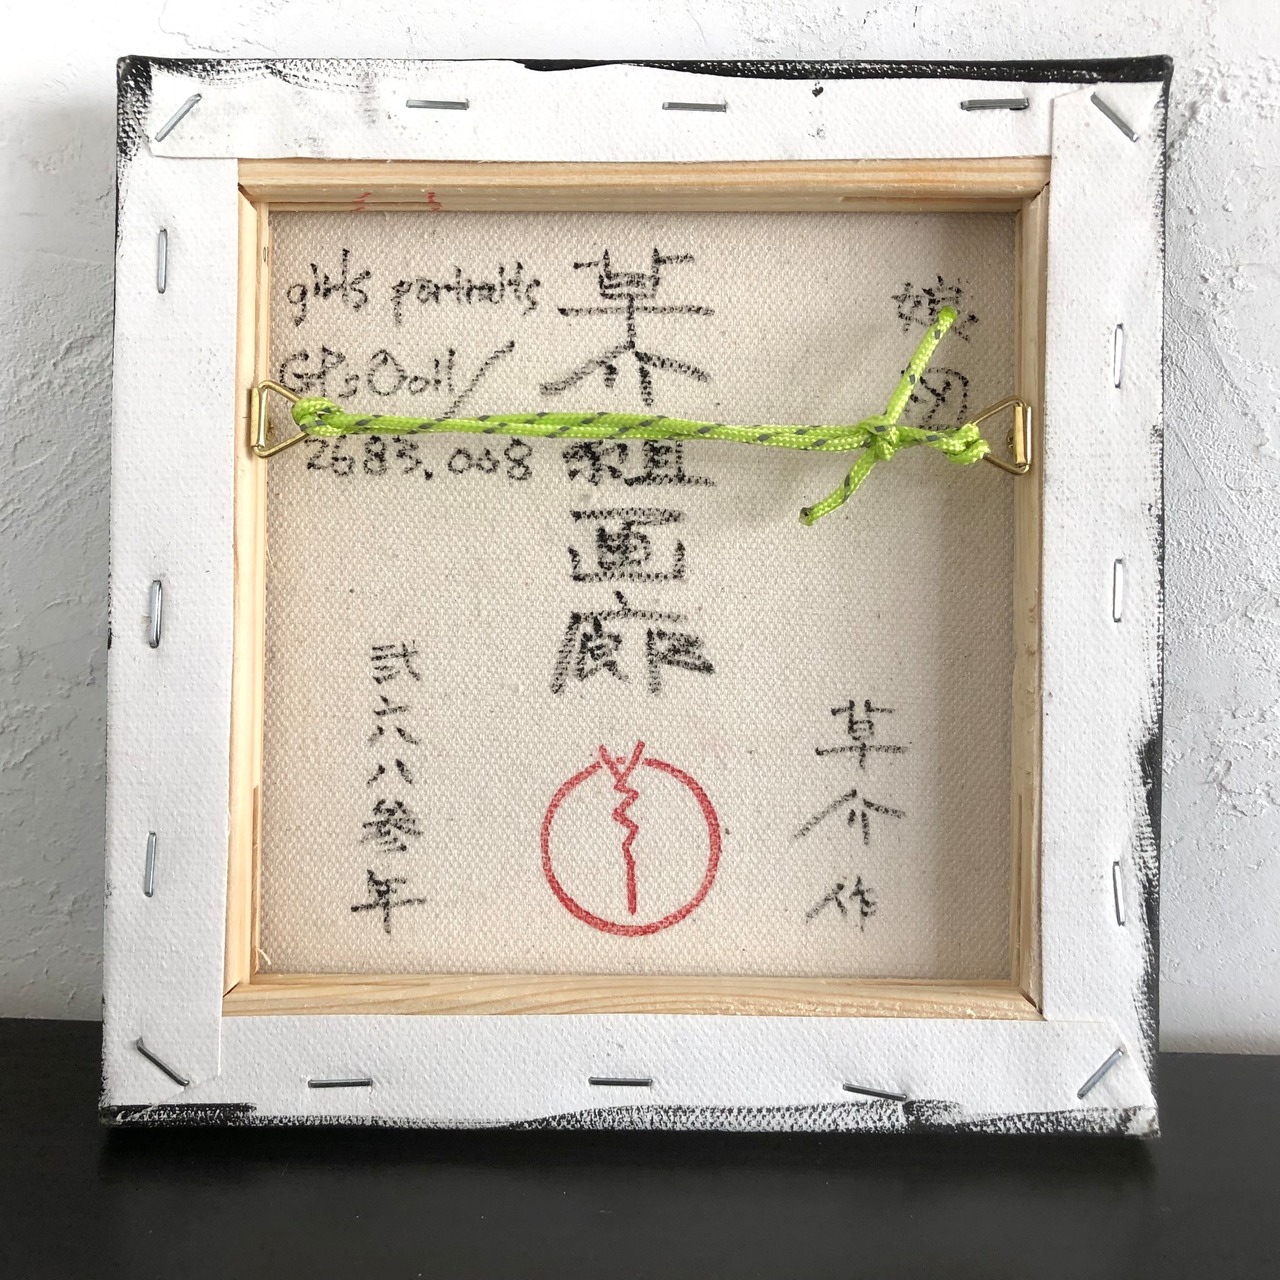 girls portraits
GPs0011/
2683.008
草介組画廊
草介作
弐六八参年